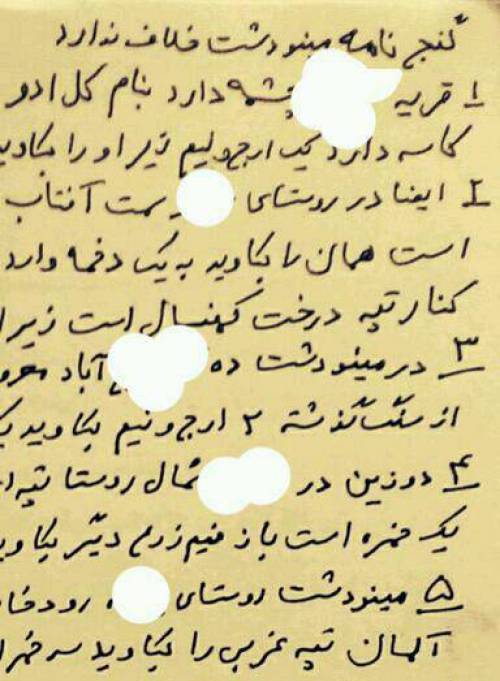 گنج نامه مینودشت خلاف ندارد
۱ قریه چشمه دارد بنام کل ادو
کاسه دارد یک ارج ونیم زیر او را بکاوید
۲ ایضا در روستای سمت آفتاب
است همان را بکاوید به یک دخمه وارد
کنار تپه درخت کهنسال است زیر
۳ در مینودشت ده آباد معرو
از سنگ گذشته ۲ ارج ونیم بکاوید یک
۴ دوزین در شمال روستا تپه ا
یک خمره است باز نیم زرع دیگر بکاوید
۵ مینودشت روستای رودخا
آلمان تپه غربی را بکاوید سه خمر